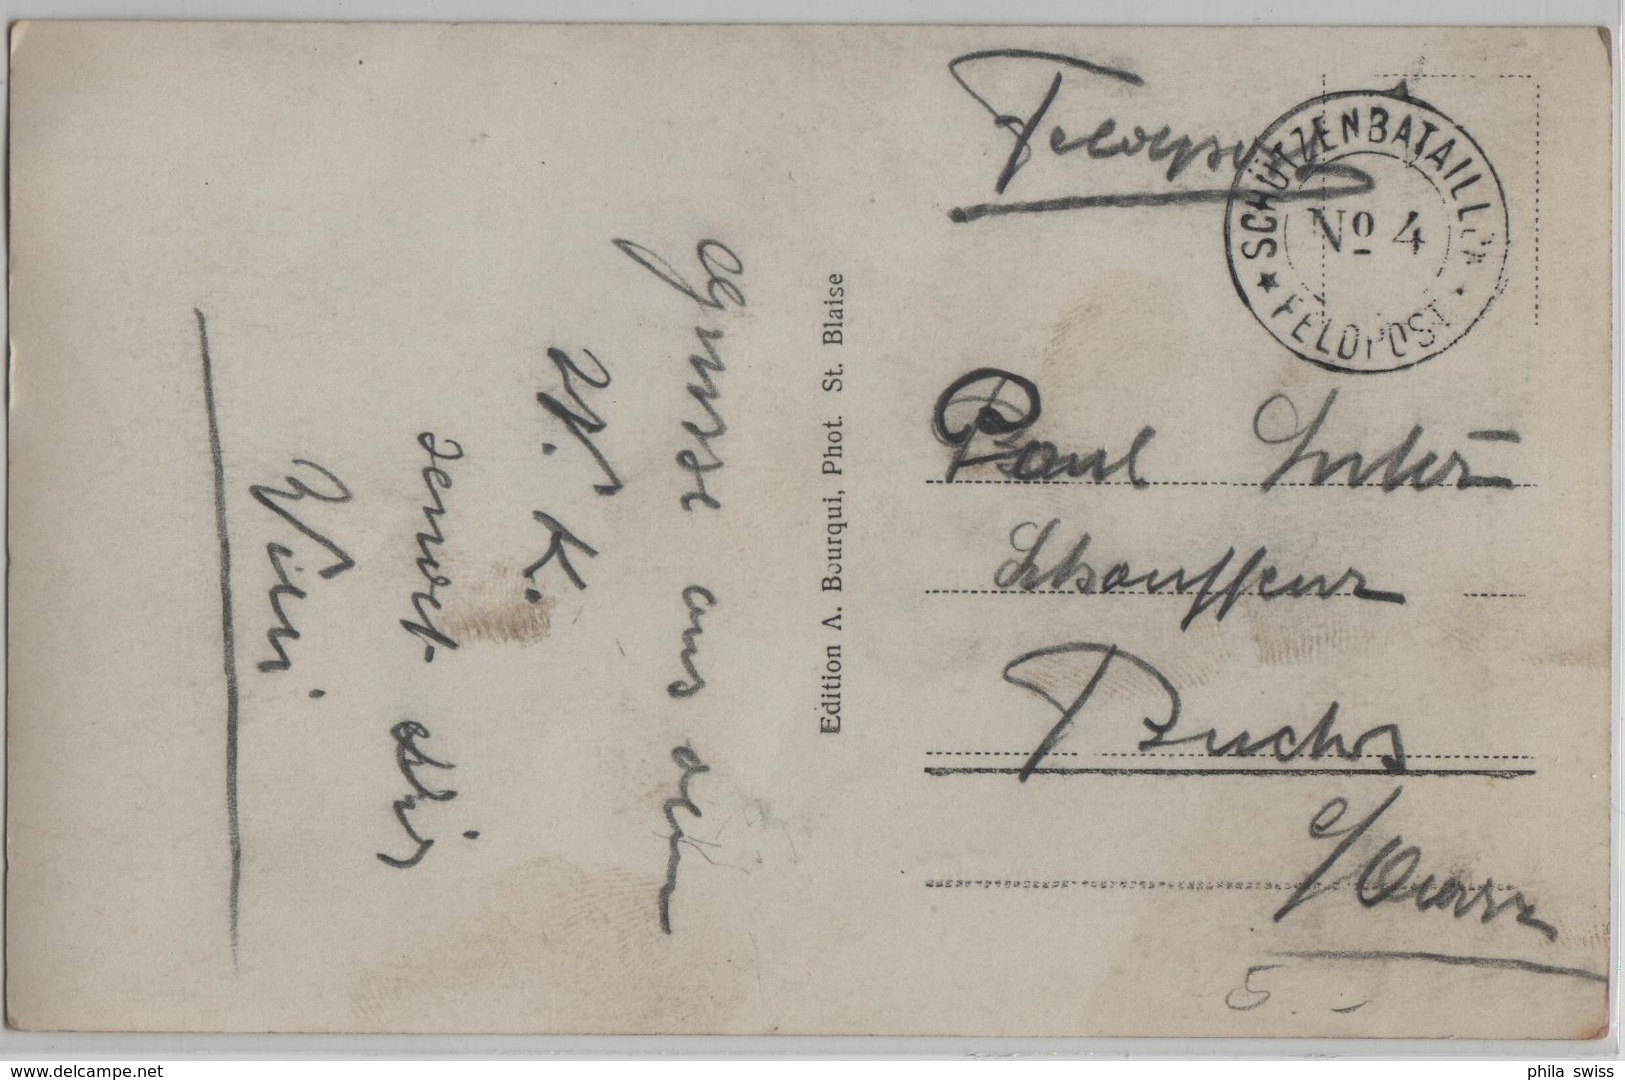 Feldpost
SCHÜTZENBATAILLON
No 4
FELDPOST
Paul Suter
Schauffeur
Buchs
b/Aarau
5.-
Grüsse aus dem
W. K.
sendet dir
Edition A. Bourqui, Phot. St. Blaise
www.delcampe.net
phila swiss